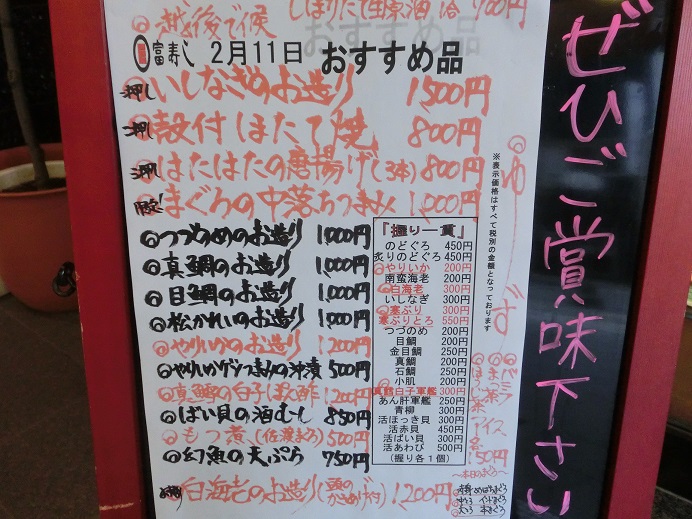 越後で候 しぼりたて生原酒 冷 700円
富寿し 2月11日 おすすめ品
押し いしなぎのお造り 1500円
押し 殻付ほたて焼 800円
押し はたはたの唐揚げ(3本) 800円
まぐろの中落ちつまみ 1,000円
つづのめのお造り 1,000円
真鯛のお造り 1,000円
目鯛のお造り 1,000円
松かれいのお造り 1,000円
やりいかのお造り 1200円
やりいかゲソつまみの沖漬 500円
真鱈の白子ぽん酢 1200円
ばい貝の酒むし 850円
もつ煮(佐渡まぐろ) 500円
幻魚の天ぷら 750円
白海老のお造り(頭のかためげ付) 1,200円
「握り一貫」
のどぐろ 450円
炙りのどぐろ 450円
やりいか 200円
南蛮海老 200円
白海老 300円
いしなぎ 300円
寒ぶり 300円
寒ぶりとろ 550円
つづのめ 200円
目鯛 200円
金目鯛 250円
真鯛 200円
石鯛 250円
小肌 200円
真鱈白子軍艦 300円
あん肝軍艦 250円
青柳 200円
活ほっき貝 300円
活赤貝 450円
活ばい貝 300円
活あわび 500円
(握り各1個)
※表示価格はすべて税別の金額となっております
ゆず
バニラ
まっ茶
ほうじ茶
アイス
各150円
〜本日のまぐろ〜
ぜひご賞味下さい